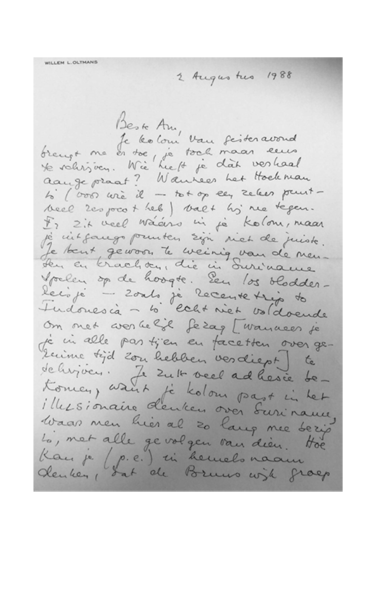 WILLEM L. OLTMANS
2 Augustus 1988
Beste Am,
Je kolom van gisteravond
brengt me er toe, je toch maar eens
te schrijven. Wie heeft je dàt verhaal
aangepraat? Wanneer het Hoekman
is (voor wie ik — tot op een zeker punt —
veel respect heb) valt hij me tegen.
Er zit veel wáárs in je kolom, maar
je uitgangspunten zijn niet de juiste.
Je bent gewoon te weinig van de men-
sen en krachten, die in Suriname
spelen op de hoogte. Een los
reisje — zoals je recente trip to
Indonesia — is echt niet voldoende
om met werkelijk gezag [wanneer je
je in alle partijen en facetten over ge-
ruime tijd zou hebben verdiept] te
schrijven. Je zult veel adhesie be-
komen, want je kolom past in het
illusionaire denken over Suriname,
waar men hier al zo lang mee bezig
is, met alle gevolgen van dien. Hoe
kan je (p.e.) in hemelsnaam
denken, dat de Brunswijk groep